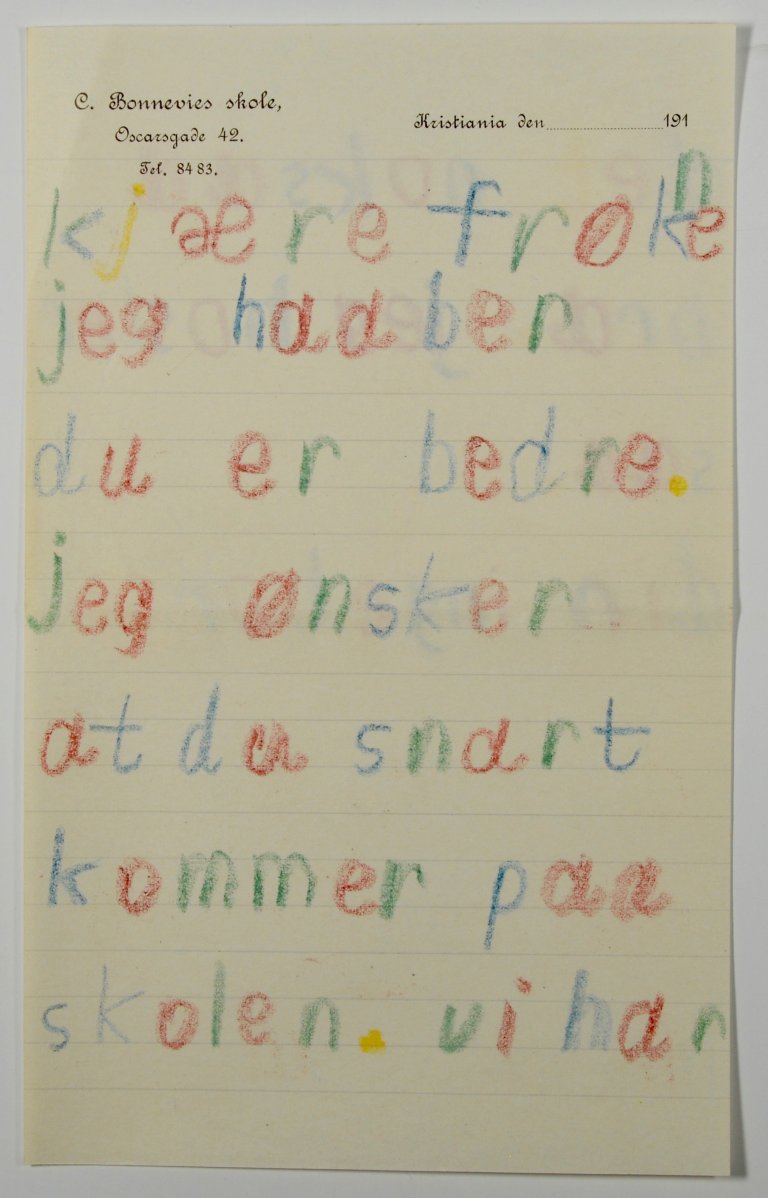 C. Bonnevies skole,
Oscarsgade 42.
Tel. 8483.
Kristiania den 191
kjære frøken
jeg haaber
du er bedre.
jeg ønsker
at du snart
kommer paa
skolen. vi har